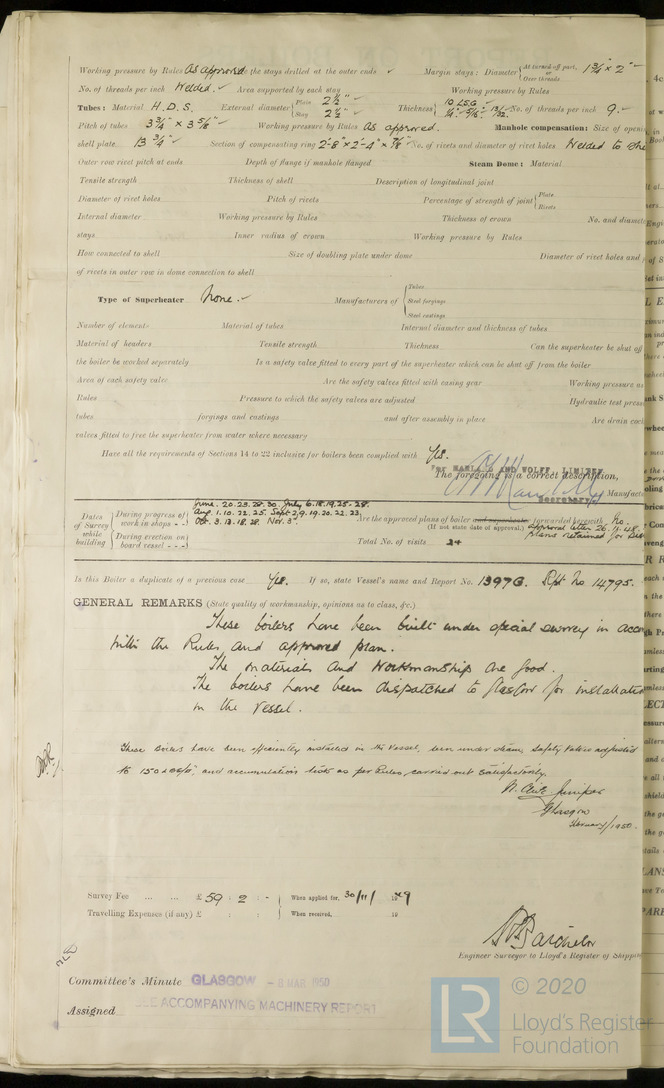 Working pressure by Rules As approved Are the stays drilled at the outer ends ✓ Margin stays: Diameter { At turned off part, or Over threads 1¾" × 2"
No. of threads per inch Welded. ✓ Area supported by each stay Working pressure by Rules
Tubes: Material H.D.S. External diameter { Plain 2½" Stay 2½" Thickness { 10 LSG ¼" 5/16" 13/32" No. of threads per inch 9.
Pitch of tubes 3¾" × 3⅝" Working pressure by Rules As approved. Manhole compensation: Size of openi
shell plate 13¾" Section of compensating ring 2'-8" × 2'-4" × ⅞" No. of rivets and diameter of rivet holes Welded to She
Outer row rivet pitch at ends Depth of flange if manhole flanged Steam Dome: Material
Tensile strength Thickness of shell Description of longitudinal joint
Diameter of rivet holes Pitch of rivets Percentage of strength of joint { Plate Rivets
Internal diameter Working pressure by Rules Thickness of crown No. and diamete
stays Inner radius of crown Working pressure by Rules
How connected to shell Size of doubling plate under dome Diameter of rivet holes and
of rivets in outer row in dome connection to shell
Type of Superheater None. Manufacturers of { Tubes Steel forgings Steel castings
Number of elements Material of tubes Internal diameter and thickness of tubes
Material of headers Tensile strength Thickness Can the superheater be shut off
the boiler be worked separately Is a safety valve fitted to every part of the superheater which can be shut off from the boiler
Area of each safety valve Are the safety valves fitted with easing gear Working pressure as
Rules Pressure to which the safety valves are adjusted Hydraulic test press
tubes forgings and castings and after assembly in place Are drain cock
valves fitted to free the superheater from water where necessary
Have all the requirements of Sections 14 to 22 inclusive for boilers been complied with Yes.
For HARLAND AND WOLFF, LIMITED
The foregoing is a correct description,
Secretary Manufactu
Dates of Survey while building { During progress of work in shops - - } June. 20. 23. 28. 30. July 6. 18. 19. 25. 28.
Aug. 1. 10. 22. 25. Sept. 2. 9. 19. 20. 22. 23.
Oct. 3. 13. 18. 28. Nov. 3.
Are the approved plans of boiler and superheater forwarded herewith No.
(If not state date of approval.) approval letter 26. 4. 48.
plans retained for
{ During erection on board vessel - - - } Total No. of visits 24
Is this Boiler a duplicate of a previous case Yes. If so, state Vessel's name and Report No. 1397G. Rpt No 14795.
GENERAL REMARKS (State quality of workmanship, opinions as to class, &c.)
These boilers have been built under special survey in acco
with the Rules and approved plan.
The materials and Workmanship are good.
The boilers have been dispatched to Glasgow for installation
in the vessel.
These boilers have been efficiently installed in the vessel, seen under steam, safety valves adjusted
to 150 and accumulation tests as per Rules, carried out satisfactorily.
Glasgow
February/1950.
Survey Fee ... ... £ 59 : 2 : - When applied for, 30/11/ 1949
Travelling Expenses (if any) £ : : When received, 19
Engineer Surveyor to Lloyd's Register of Shippin
Committee's Minute GLASGOW - 8 MAR 1950
Assigned SEE ACCOMPANYING MACHINERY REPORT
LR © 2020
Lloyd's Register
Foundation